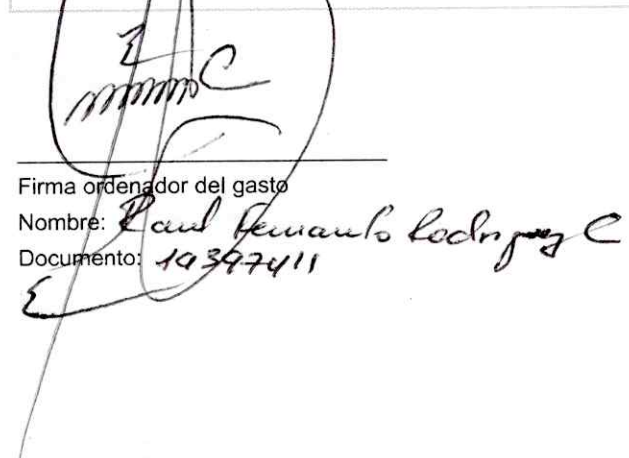 Firma ordenador del gasto
Nombre: Raul Fernando Rodriguez C
Documento: 19397411